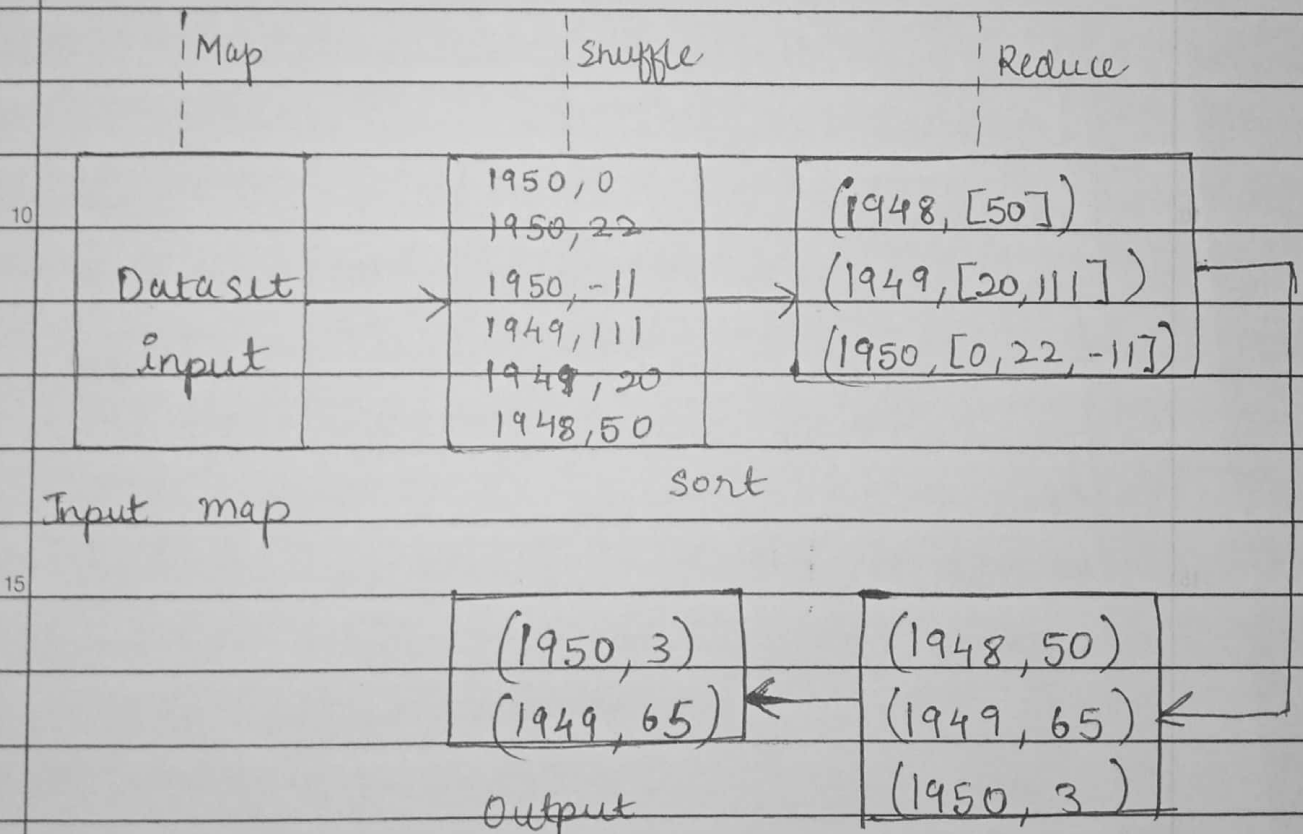 Map
Shuffle
Reduce
10
Dataset
input
1950, 0
1950, 22
1950, -11
1949, 111
1949, 20
1948, 50
(1948, [50])
(1949, [20, 111])
(1950, [0, 22, -11])
Sort
Input map
15
(1950, 3)
(1949, 65)
Output
(1948, 50)
(1949, 65)
(1950, 3)